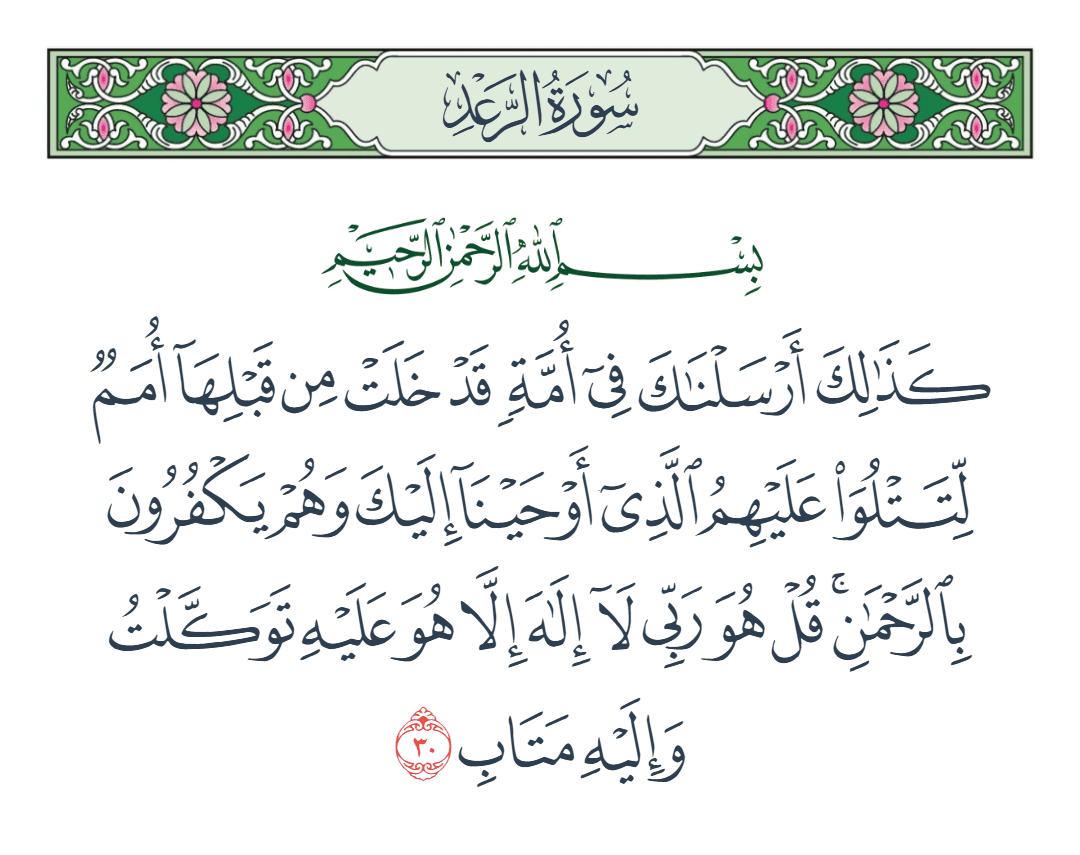 سُورَةُ الرَّعْدِ
بِسْمِ ٱللَّهِ ٱلرَّحْمَٰنِ ٱلرَّحِيمِ
كَذَٰلِكَ أَرْسَلْنَٰكَ فِىٓ أُمَّةٍ قَدْ خَلَتْ مِن قَبْلِهَآ أُمَمٌ
لِّتَتْلُوَا۟ عَلَيْهِمُ ٱلَّذِىٓ أَوْحَيْنَآ إِلَيْكَ وَهُمْ يَكْفُرُونَ
بِٱلرَّحْمَٰنِ ۚ قُلْ هُوَ رَبِّى لَآ إِلَٰهَ إِلَّا هُوَ عَلَيْهِ تَوَكَّلْتُ
وَإِلَيْهِ مَتَابِ ٣٠